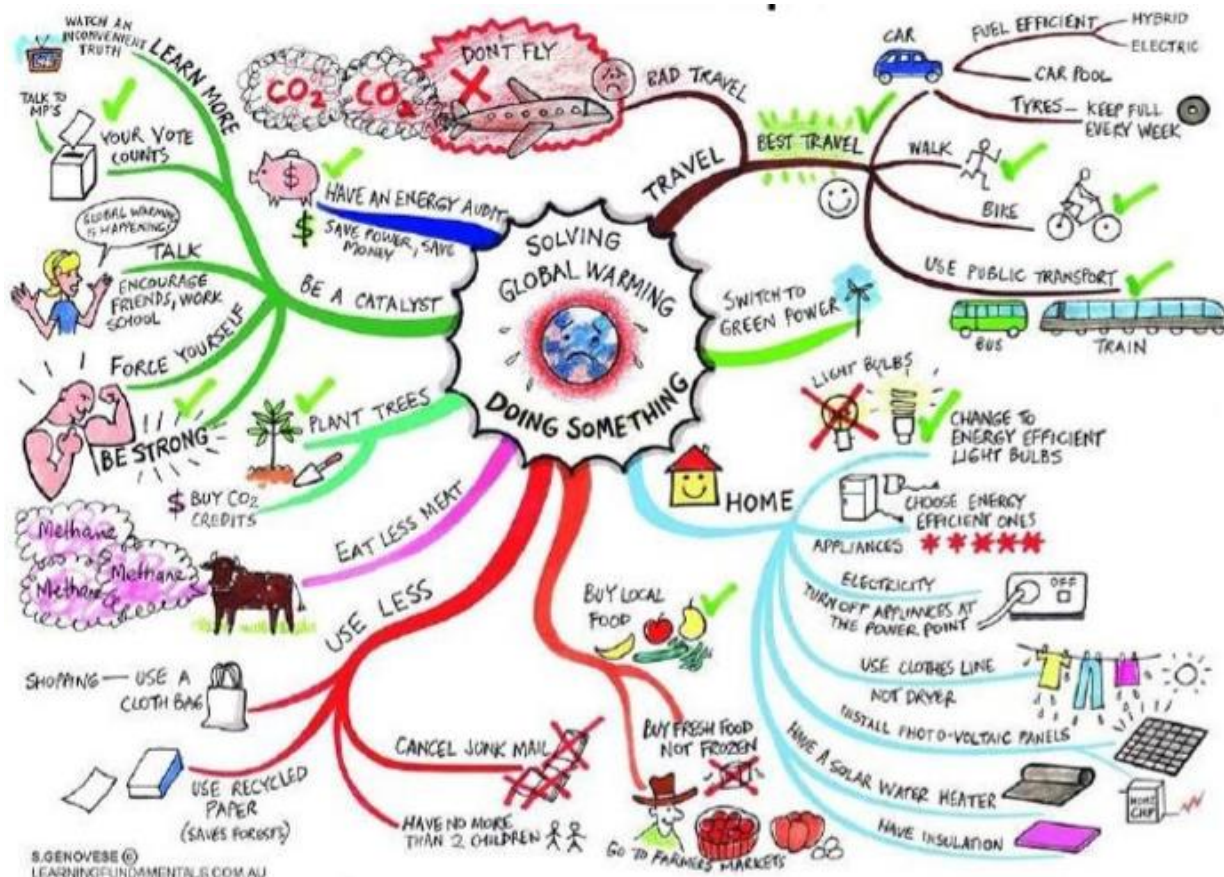 SOLVING
GLOBAL WARMING
DOING SOMETHING
TRAVEL
BAD TRAVEL
DON'T FLY
CO2
CO2
BEST TRAVEL
CAR
FUEL EFFICIENT
HYBRID
ELECTRIC
CAR POOL
TYRES — KEEP FULL
EVERY WEEK
WALK
BIKE
USE PUBLIC TRANSPORT
BUS
TRAIN
SWITCH TO
GREEN POWER
HOME
LIGHT BULBS
CHANGE TO
ENERGY EFFICIENT
LIGHT BULBS
CHOOSE ENERGY
EFFICIENT ONES
APPLIANCES
ELECTRICITY
OFF
TURN OFF APPLIANCES AT
THE POWER POINT
USE CLOTHES LINE
NOT DRYER
INSTALL PHOTO-VOLTAIC PANELS
HAVE A SOLAR WATER HEATER
HAVE INSULATION
BUY LOCAL
FOOD
BUY FRESH FOOD
NOT FROZEN
GO TO FARMERS MARKETS
USE LESS
SHOPPING — USE A
CLOTH BAG
USE RECYCLED
PAPER
(SAVES FORESTS)
CANCEL JUNK MAIL
HAVE NO MORE
THAN 2 CHILDREN
EAT LESS MEAT
Methane
Methane
Methane
PLANT TREES
$ BUY CO2
CREDITS
BE A CATALYST
LEARN MORE
WATCH AN
INCONVENIENT
TRUTH
TALK TO
MP'S
YOUR VOTE
COUNTS
GLOBAL WARMING
IS HAPPENING!
TALK
ENCOURAGE
FRIENDS, WORK
SCHOOL
FORCE YOURSELF
BE STRONG
HAVE AN ENERGY AUDIT
$ SAVE POWER, SAVE
MONEY
$
S.GENOVESE ©
LEARNINGFUNDAMENTALS.COM.AU